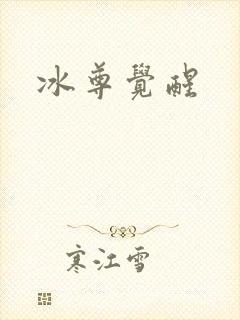 冰尊覺醒
寒江雪